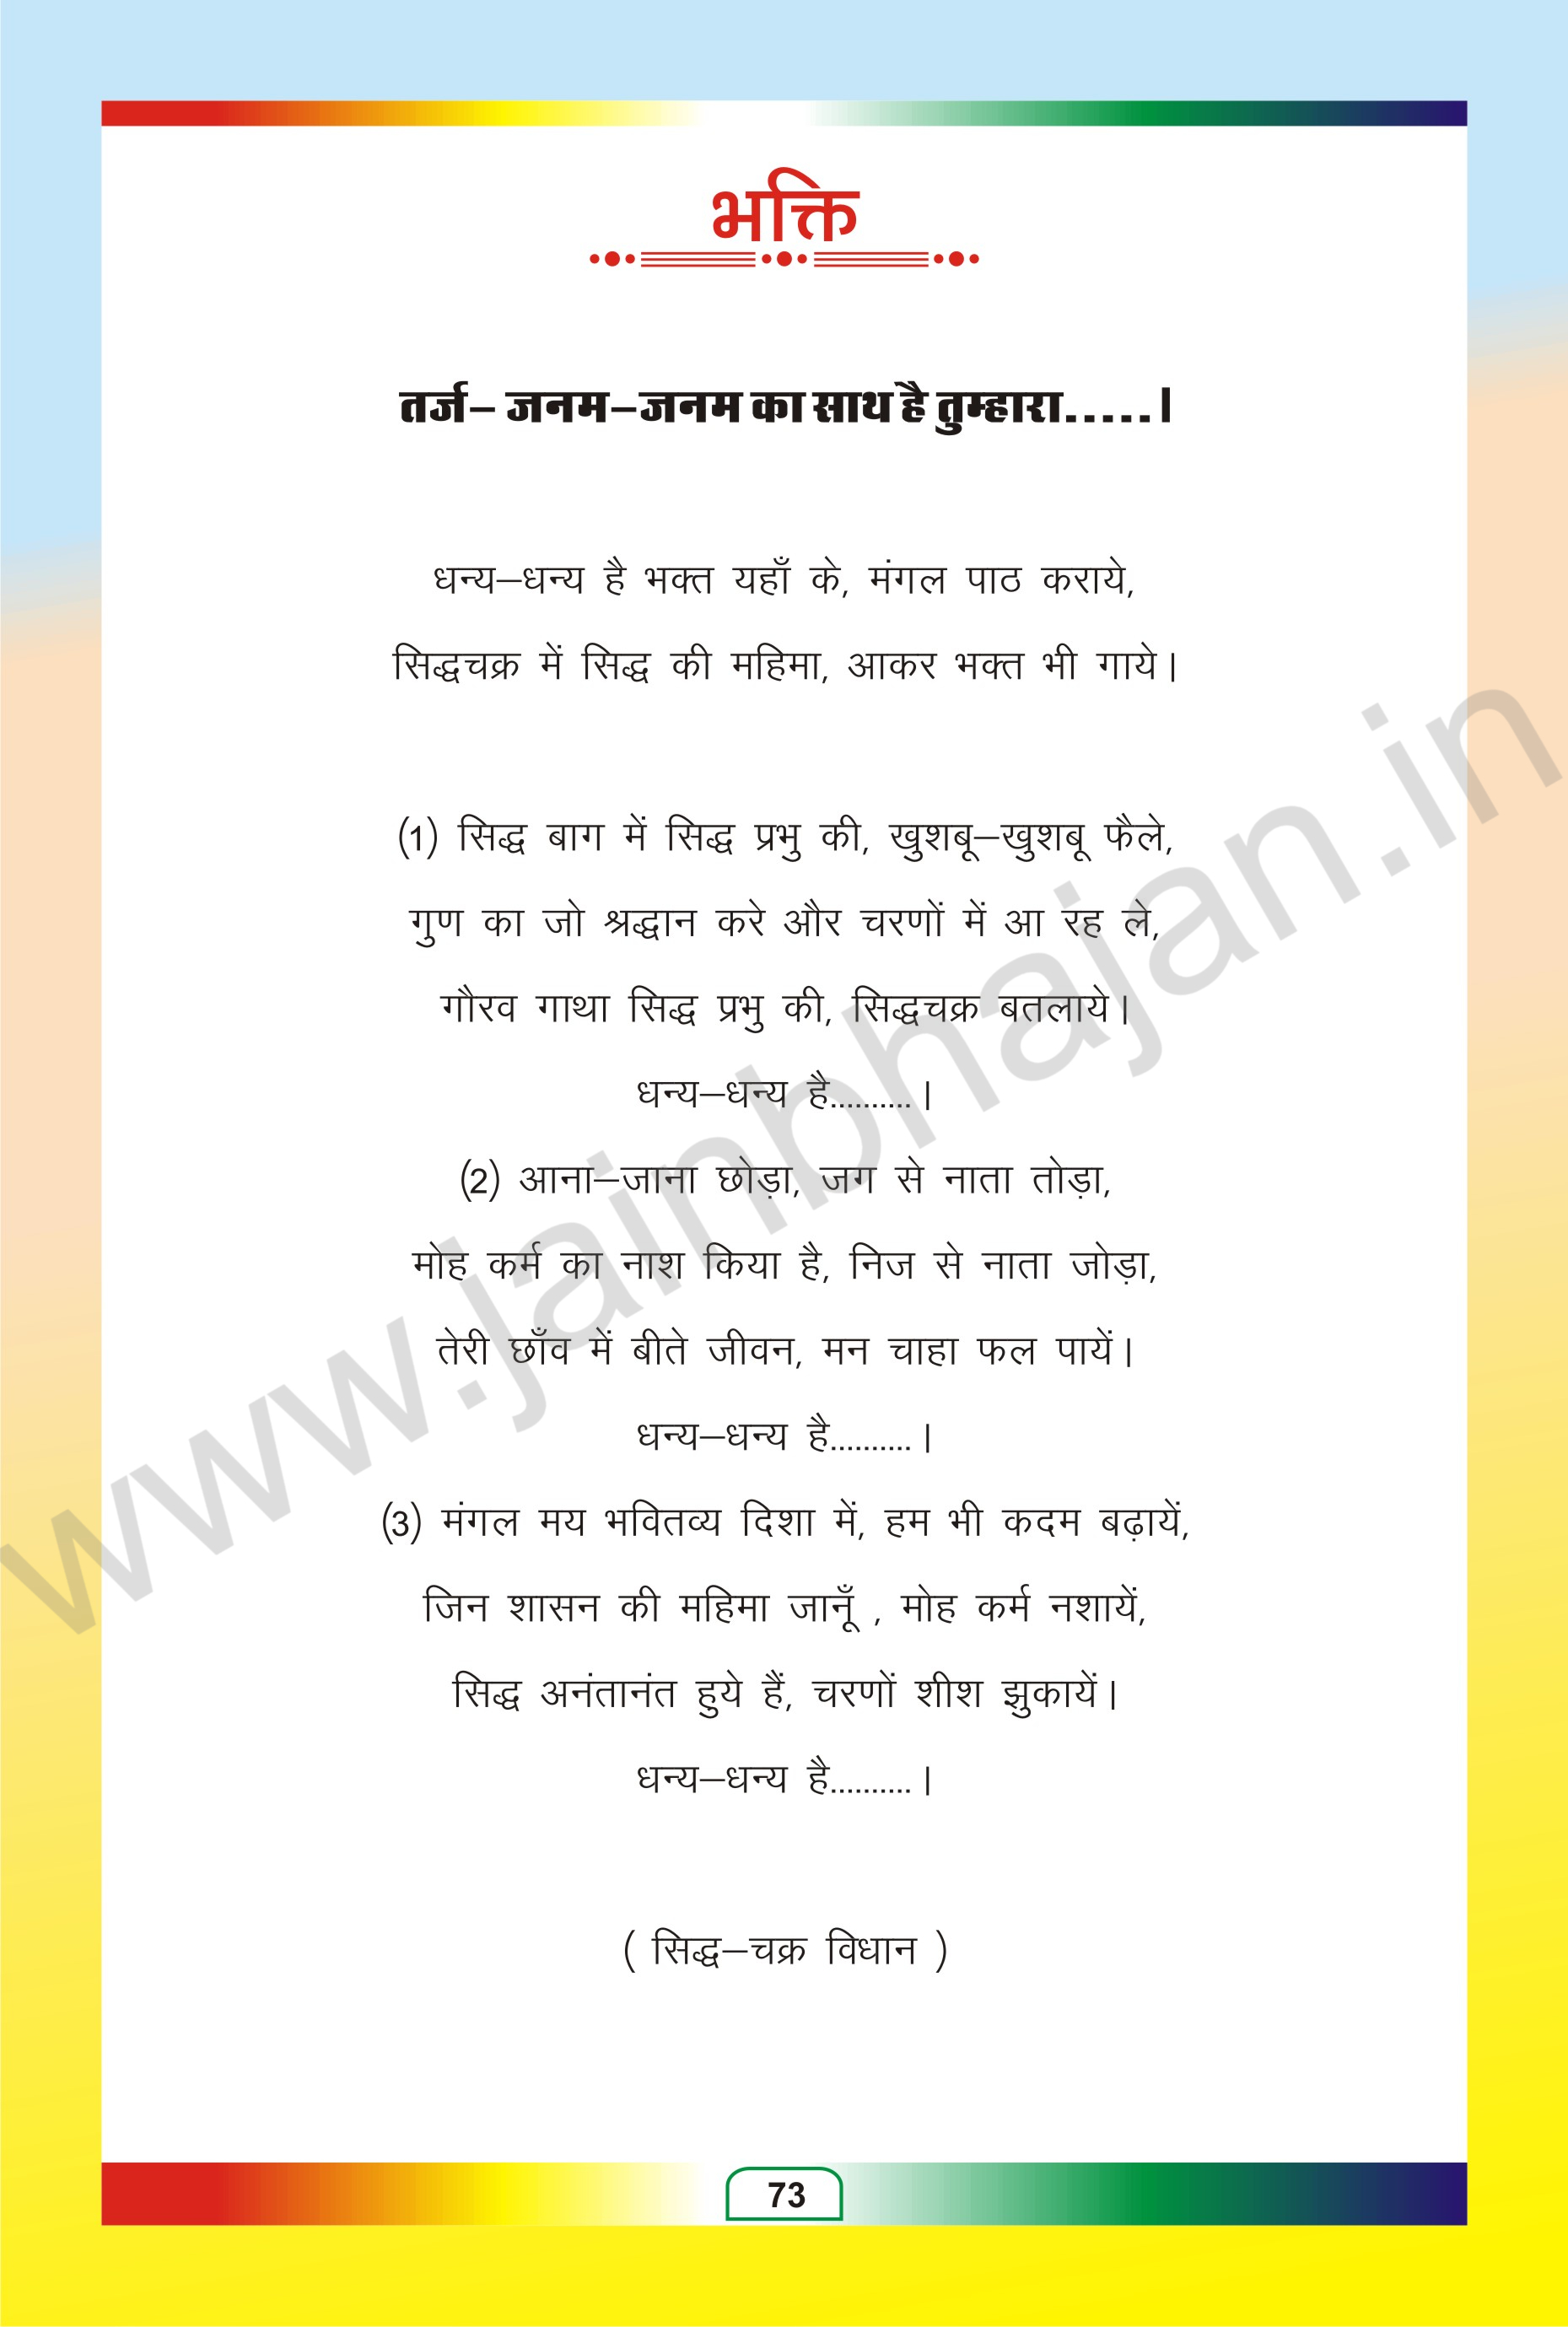 भक्ति
तर्ज– जनम–जनम का साथ है तुम्हारा.....।
धन्य–धन्य है भक्त यहाँ के, मंगल पाठ कराये,
सिद्धचक्र में सिद्ध की महिमा, आकर भक्त भी गाये।
(1) सिद्ध बाग में सिद्ध प्रभु की, खुशबू–खुशबू फैले,
गुण का जो श्रद्धान करे और चरणों में आ रह ले,
गौरव गाथा सिद्ध प्रभु की, सिद्धचक्र बतलाये।
धन्य–धन्य है..........।
(2) आना–जाना छोड़ा, जग से नाता तोड़ा,
मोह कर्म का नाश किया है, निज से नाता जोड़ा,
तेरी छाँव में बीते जीवन, मन चाहा फल पायें।
धन्य–धन्य है..........।
(3) मंगल मय भवितव्य दिशा में, हम भी कदम बढ़ायें,
जिन शासन की महिमा जानूँ , मोह कर्म नशायें,
सिद्ध अनंतानंत हुये हैं, चरणों शीश झुकायें।
धन्य–धन्य है..........।
( सिद्ध–चक्र विधान )
73
www.jainbhajan.in